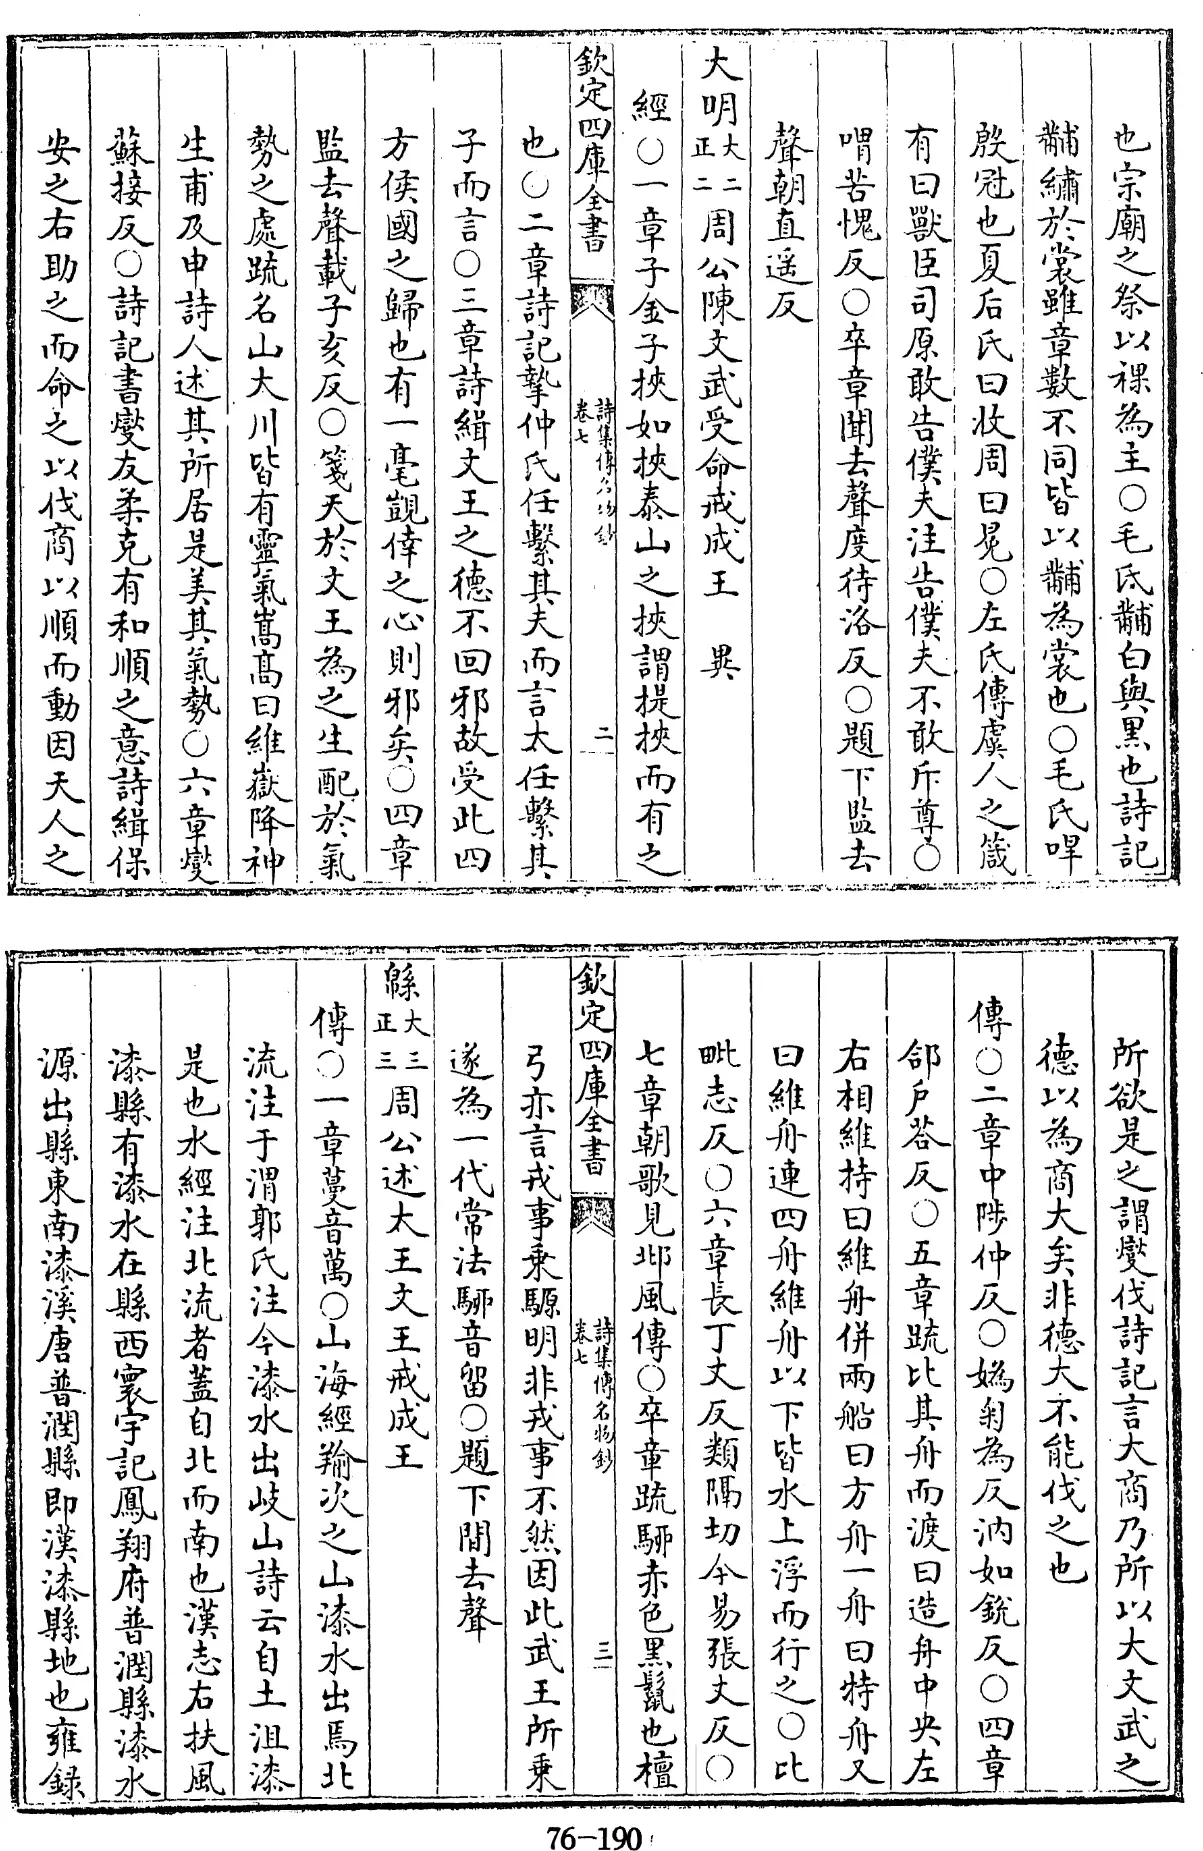 也宗廟之祭以祼為主○毛氏黼白與黒也詩記
黼繡於裳雖章數不同皆以黼為裳也○毛氏哻
殷冠也夏后氏曰收周曰冕○左氏傳虞人之箴
有曰獸臣司原敢告僕夫注告僕夫不敢斥尊○
喟苦愧反○卒章聞去聲度待洛反○題下監去
聲朝直遥反
大明大二正二周公陳文武受命戒成王 異
經○一章子金子挾如挾泰山之挾謂提挾而有之
欽定四庫全書 詩集傳名物鈔卷七 二
也○二章詩記摯仲氏任繫其夫而言太任繫其
子而言○三章詩緝文王之德不回邪故受此四
方侯國之歸也有一毫覬倖之心則邪矣○四章
監去聲載子亥反○箋天於文王為之生配於氣
勢之處疏名山大川皆有靈氣嵩髙曰維嶽降神
生甫及申詩人述其所居是美其氣勢○六章燮
蘇接反○詩記書燮友柔克有和順之意詩緝保
安之右助之而命之以伐商以順而動因天人之
所欲是之謂燮伐詩記言大商乃所以大文武之
德以為商大矣非德大不能伐之也
傳○二章中陟仲反○媯匊為反汭如銳反○四章
郃户荅反○五章疏比其舟而渡曰造舟中央左
右相維持曰維舟併兩船曰方舟一舟曰特舟又
曰維舟連四舟維舟以下皆水上浮而行之○比
毗志反○六章長丁丈反類隔切今易張丈反○
七章朝歌見邶風傳○卒章疏駵赤色黒鬛也檀
欽定四庫全書 詩集傳名物鈔卷七 三
弓亦言戎事乘騵明非戎事不然因此武王所乗
遂為一代常法駵音留○題下間去聲
緜大三正三周公述太王文王戒成王
傳○一章蔓音萬○山海經羭次之山漆水出焉北
流注于渭郭氏注今漆水出岐山詩云自土沮漆
是也水經注北流者蓋自北而南也漢志右扶風
漆縣有漆水在縣西寰宇記鳳翔府普潤縣漆水
源出縣東南漆溪唐普潤縣即漢漆縣地也雍録
76-190